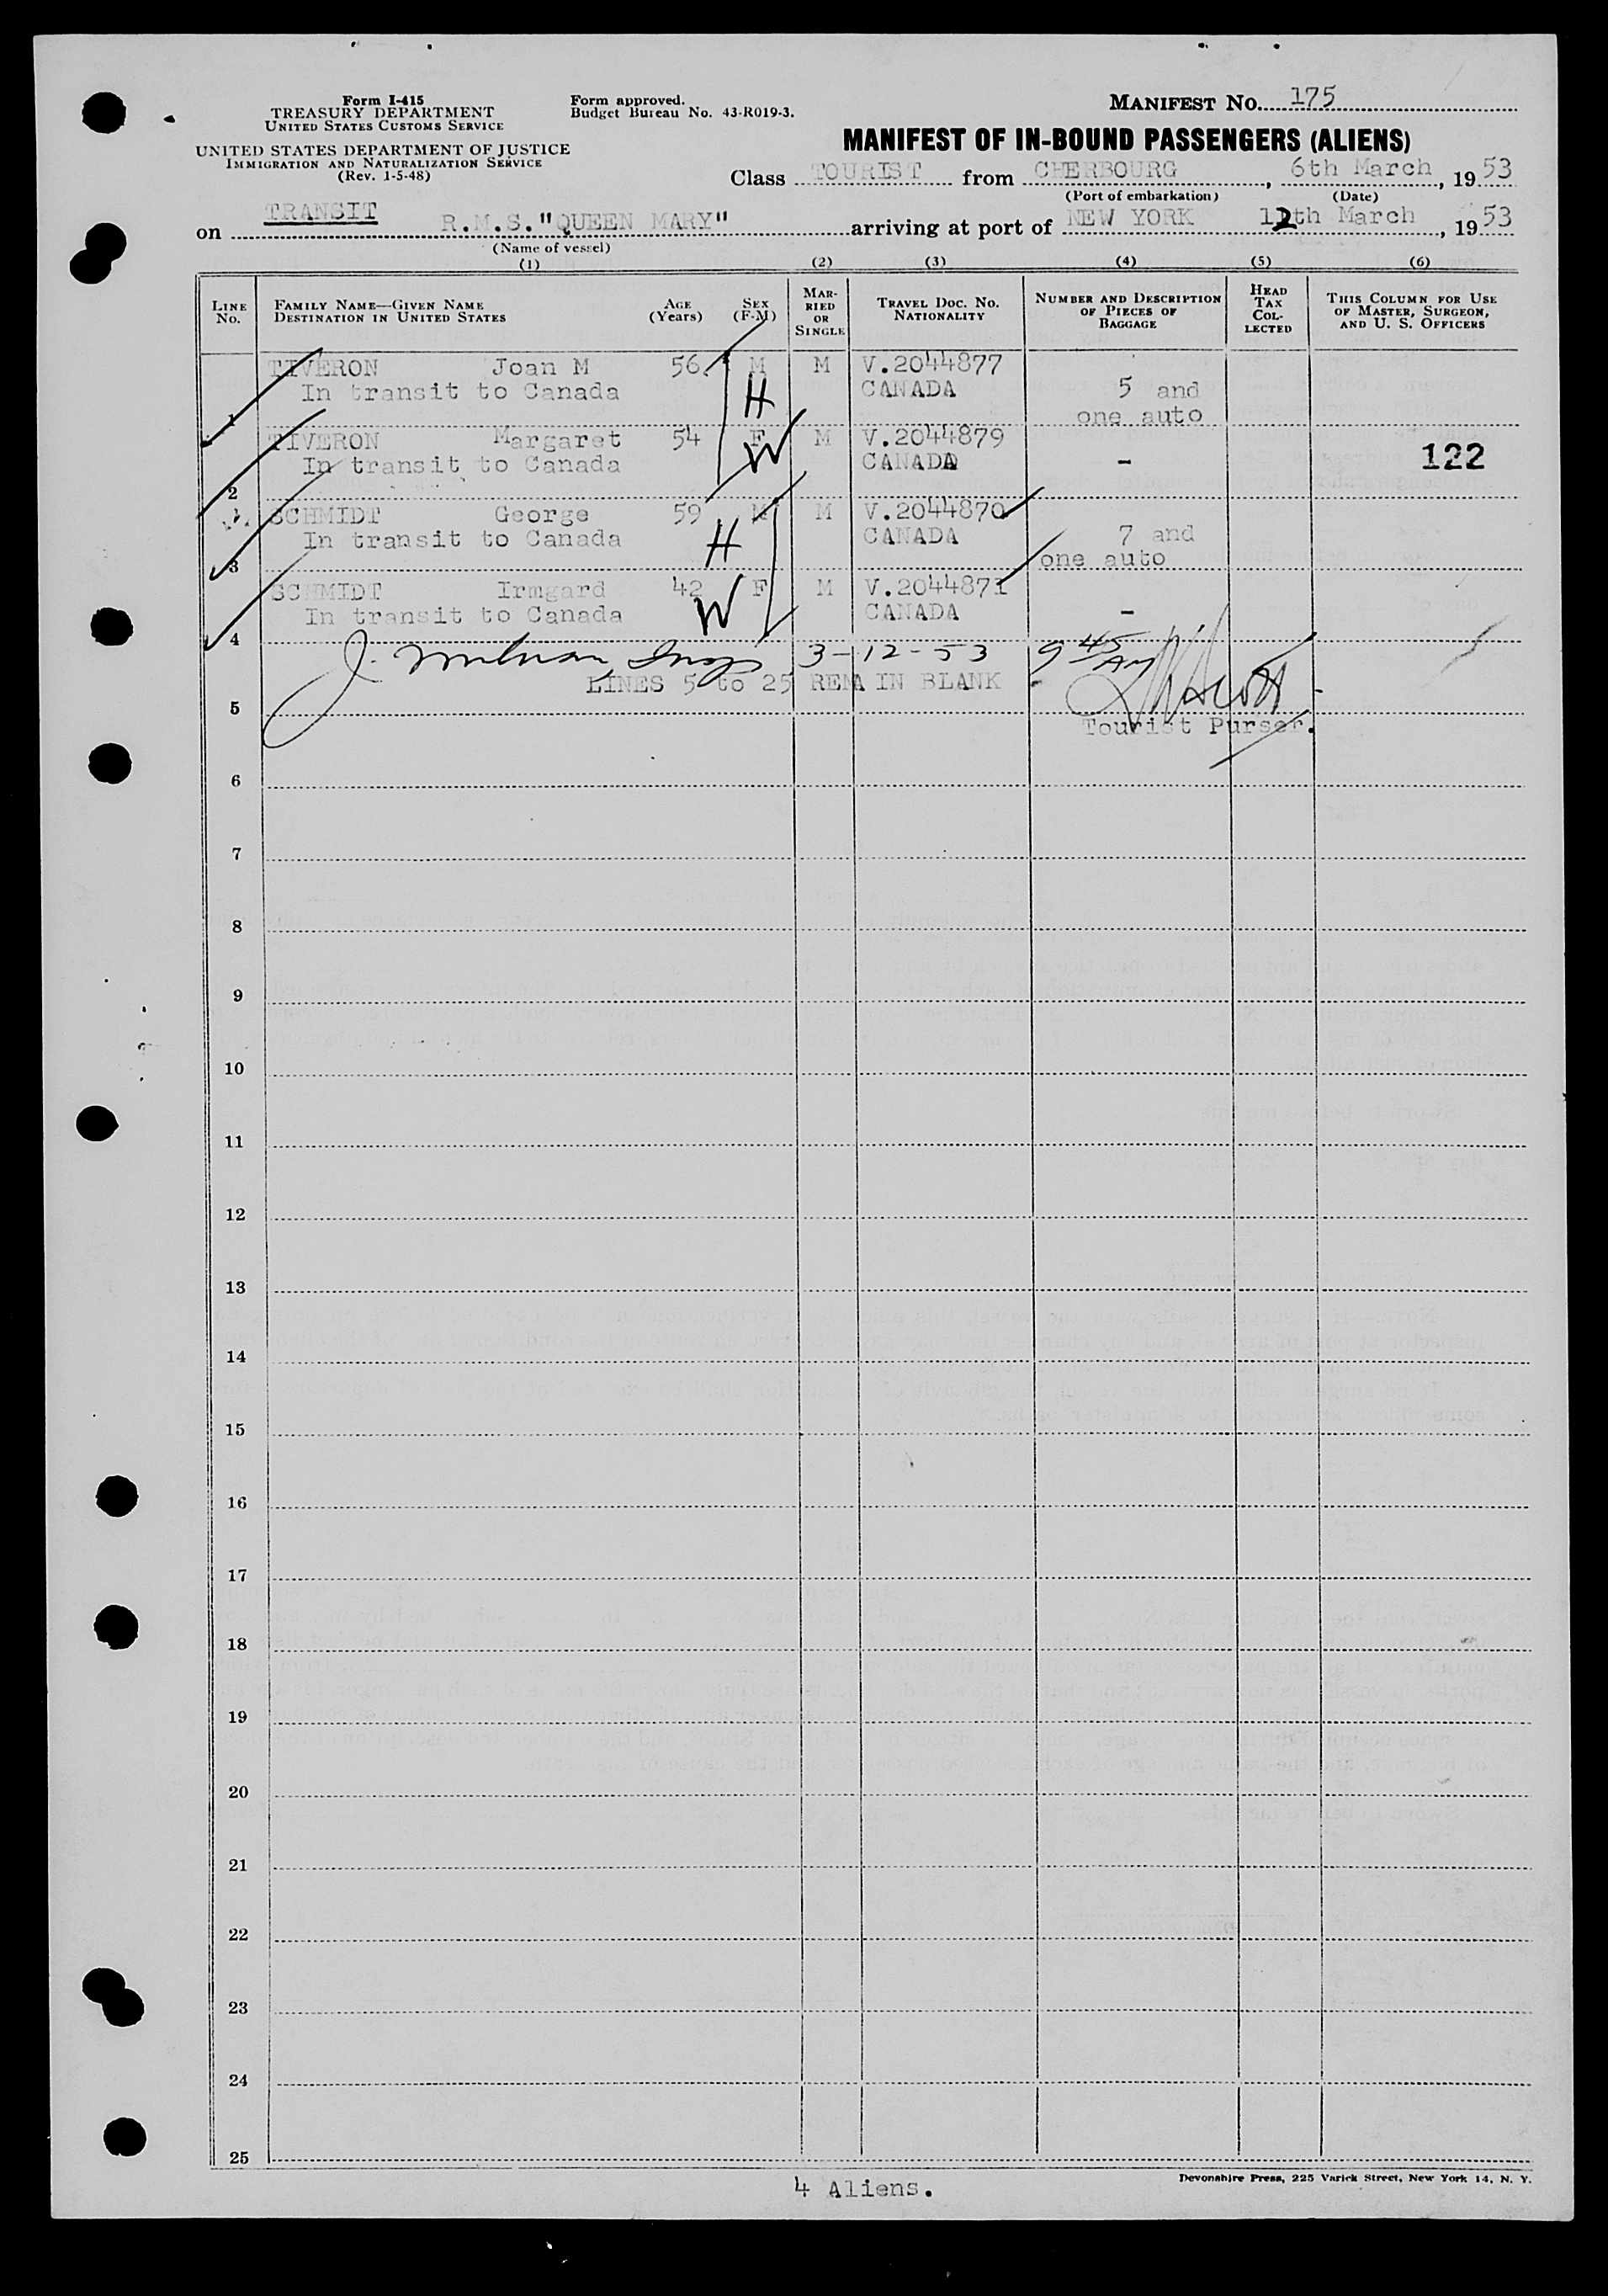 Form I-415
TREASURY DEPARTMENT
UNITED STATES CUSTOMS SERVICE
UNITED STATES DEPARTMENT OF JUSTICE
IMMIGRATION AND NATURALIZATION SERVICE
(Rev. 1-5-48)
Form approved.
Budget Bureau No. 43-R019-3.
MANIFEST NO. 175
MANIFEST OF IN-BOUND PASSENGERS (ALIENS)
Class TOURIST from CHERBOURG, 6th March, 1953
(Port of embarkation) (Date)
on TRANSIT R.M.S. "QUEEN MARY" arriving at port of NEW YORK 12th March, 1953
(Name of vessel)
(1) (2) (3) (4) (5) (6)
LINE No. FAMILY NAME—GIVEN NAME DESTINATION IN UNITED STATES AGE (Years) SEX (F-M) MARRIED OR SINGLE TRAVEL DOC. NO. NATIONALITY NUMBER AND DESCRIPTION OF PIECES OF BAGGAGE HEAD TAX COLLECTED THIS COLUMN FOR USE OF MASTER, SURGEON, AND U. S. OFFICERS
TIVERON Joan M 56 M M V.2044877
In transit to Canada H CANADA 5 and
1 one auto
TIVERON Margaret 54 F M V.2044879
In transit to Canada W CANADA - 122
2
SCHMIDT George 59 M M V.2044870
In transit to Canada H CANADA 7 and
3 one auto
SCHMIDT Irmgard 42 F M V.2044871
In transit to Canada W CANADA -
4
J. 3-12-53 9 45 AM
LINES 5 to 25 REMAIN BLANK
5
Tourist Purser.
6
7
8
9
10
11
12
13
14
15
16
17
18
19
20
21
22
23
24
25
4 Aliens.
Devonshire Press, 225 Varick Street, New York 14, N. Y.